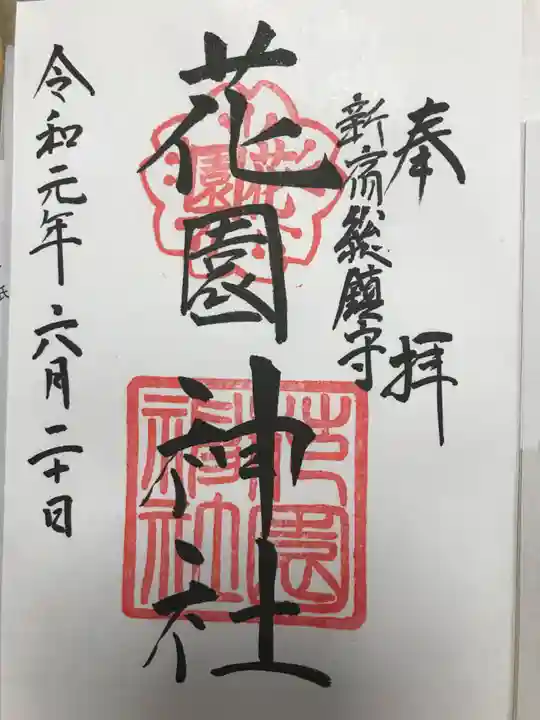 奉拝
新宿総鎮守
花園神社
花園
花園
神社
令和元年六月二十日
氏